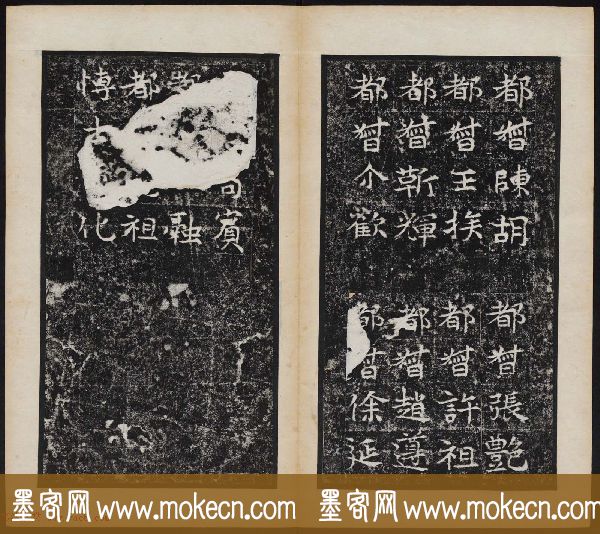 都督陳胡 都督張艷
都督王 都督許祖
都督靳輝 都督趙遵
都督介歡 都督徐延
賓
都 融
都 祖
博 化
墨客网 www.mokecn.com 墨客网 www.mokecn.com